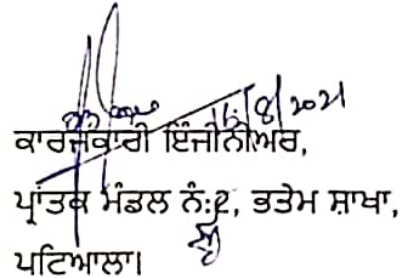 16/8/2021
ਕਾਰਜਕਾਰੀ ਇੰਜੀਨੀਅਰ,
ਪ੍ਰਾਂਤਕ ਮੰਡਲ ਨੰ:2, ਭਤੇਮ ਸ਼ਾਖਾ,
ਪਟਿਆਲਾ।